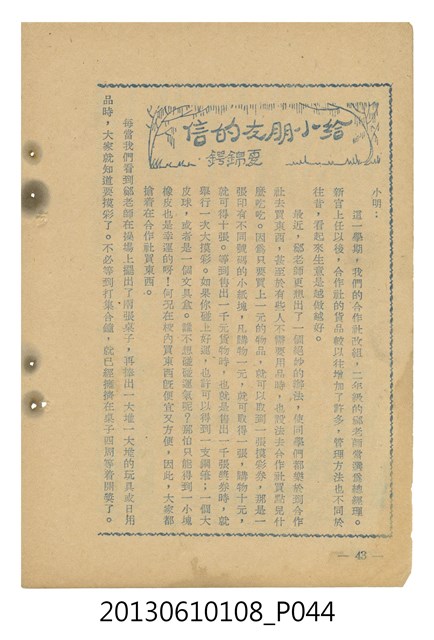 給小朋友的信
夏錦鍔
小明：
這一學期，我們的合作社改組，二年級的邱老師當選當總經理。
新官上任以後，合作社的貨品較以往增加了許多，管理方法也不同於
往昔，看起來生意是越做越好。
最近，邱老師更想出了一個絕妙的辦法，使同學們都樂於到合作
社去買東西，甚至於有些人不需要用品時，也設法去合作社買點兒什
麼吃吃。因為只要買上一元的物品，就可以取到一張摸彩券，那是一
張印有不同號碼的小紙塊，凡購物一元，就可取得一張，購物十元，
就可得十張。等到售出一千元貨物時，也就是售出一千張獎券時，就
舉行一次大摸彩。如果你碰上好運，也許可以得到一支鋼筆；一個大
皮球，或者是一個文具盒。誰不想碰碰運氣呢？那怕只能得到一小塊
橡皮也是幸運的呀！何況在校內買東西既便宜又方便，因此，大家都
搶着在合作社買東西。
每當我們看到邱老師在操場上擺出了兩張桌子，再捧出一大堆一大堆的玩具或日用
品時，大家就知道要摸彩了。不必等到打集合鐘，就已經擁擠在桌子四周等着開獎了。
— 43 —
20130610108_P044